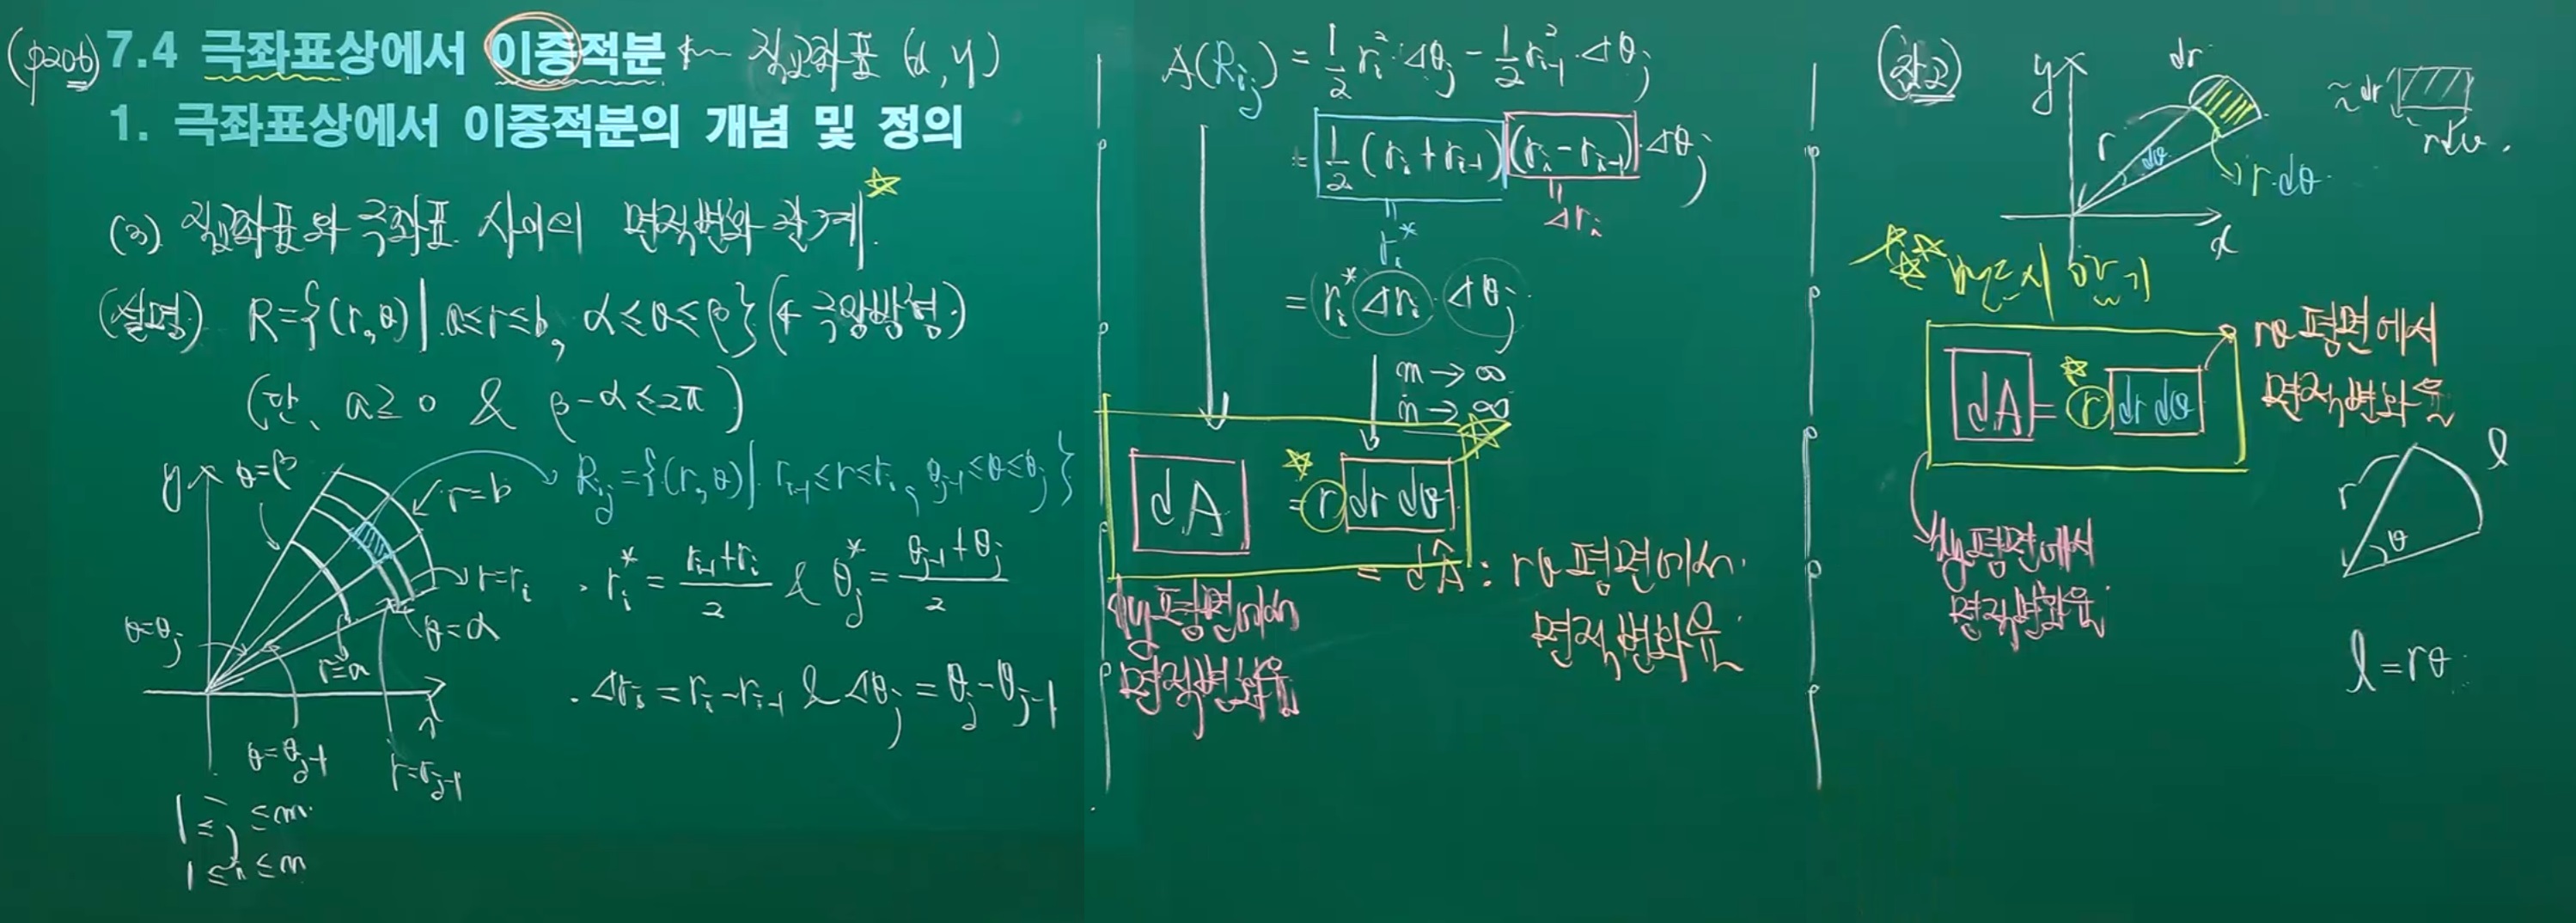 (p206) 7.4 극좌표상에서 이중적분 ← 직교좌표 (x, y)
1. 극좌표상에서 이중적분의 개념 및 정의
(3) 직교좌표와 극좌표 사이의 면적변화 관계 ☆
(설명) R={(r,θ)| a≤r≤b, α≤θ≤β} (← 극왕방형)
(단, a≥0 & β-α≤2π)
y
θ=β
r=b
r=r_i
θ=α
r=a
θ=θ_j
x
θ=θ_{j-1}
r=r_{i-1}
1≤j≤m
1≤i≤n
R_{ij}={(r,θ)| r_{i-1}≤r≤r_i, θ_{j-1}≤θ≤θ_j}
· r_i* = (r_{i-1}+r_i)/2 & θ_j* = (θ_{j-1}+θ_j)/2
· Δr_i = r_i-r_{i-1} & Δθ_j = θ_j-θ_{j-1}
A(R_{ij}) = 1/2 r_i²·Δθ_j - 1/2 r_{i-1}²·Δθ_j
= 1/2 (r_i+r_{i-1}) (r_i-r_{i-1})·Δθ_j
r_i*
Δr_i
= r_i* Δr_i·Δθ_j
m→∞
n→∞
dA = r dr dθ
= dÂ : rθ평면에서
면적변화율
xy평면에서
면적변화율
(참고)
y
dr
r
dθ
r·dθ
x
≈ dr
rdθ.
반드시 암기
dA = r dr dθ
rθ평면에서
면적변화율
xy평면에서
면적변화율
r
θ
l
l=rθ